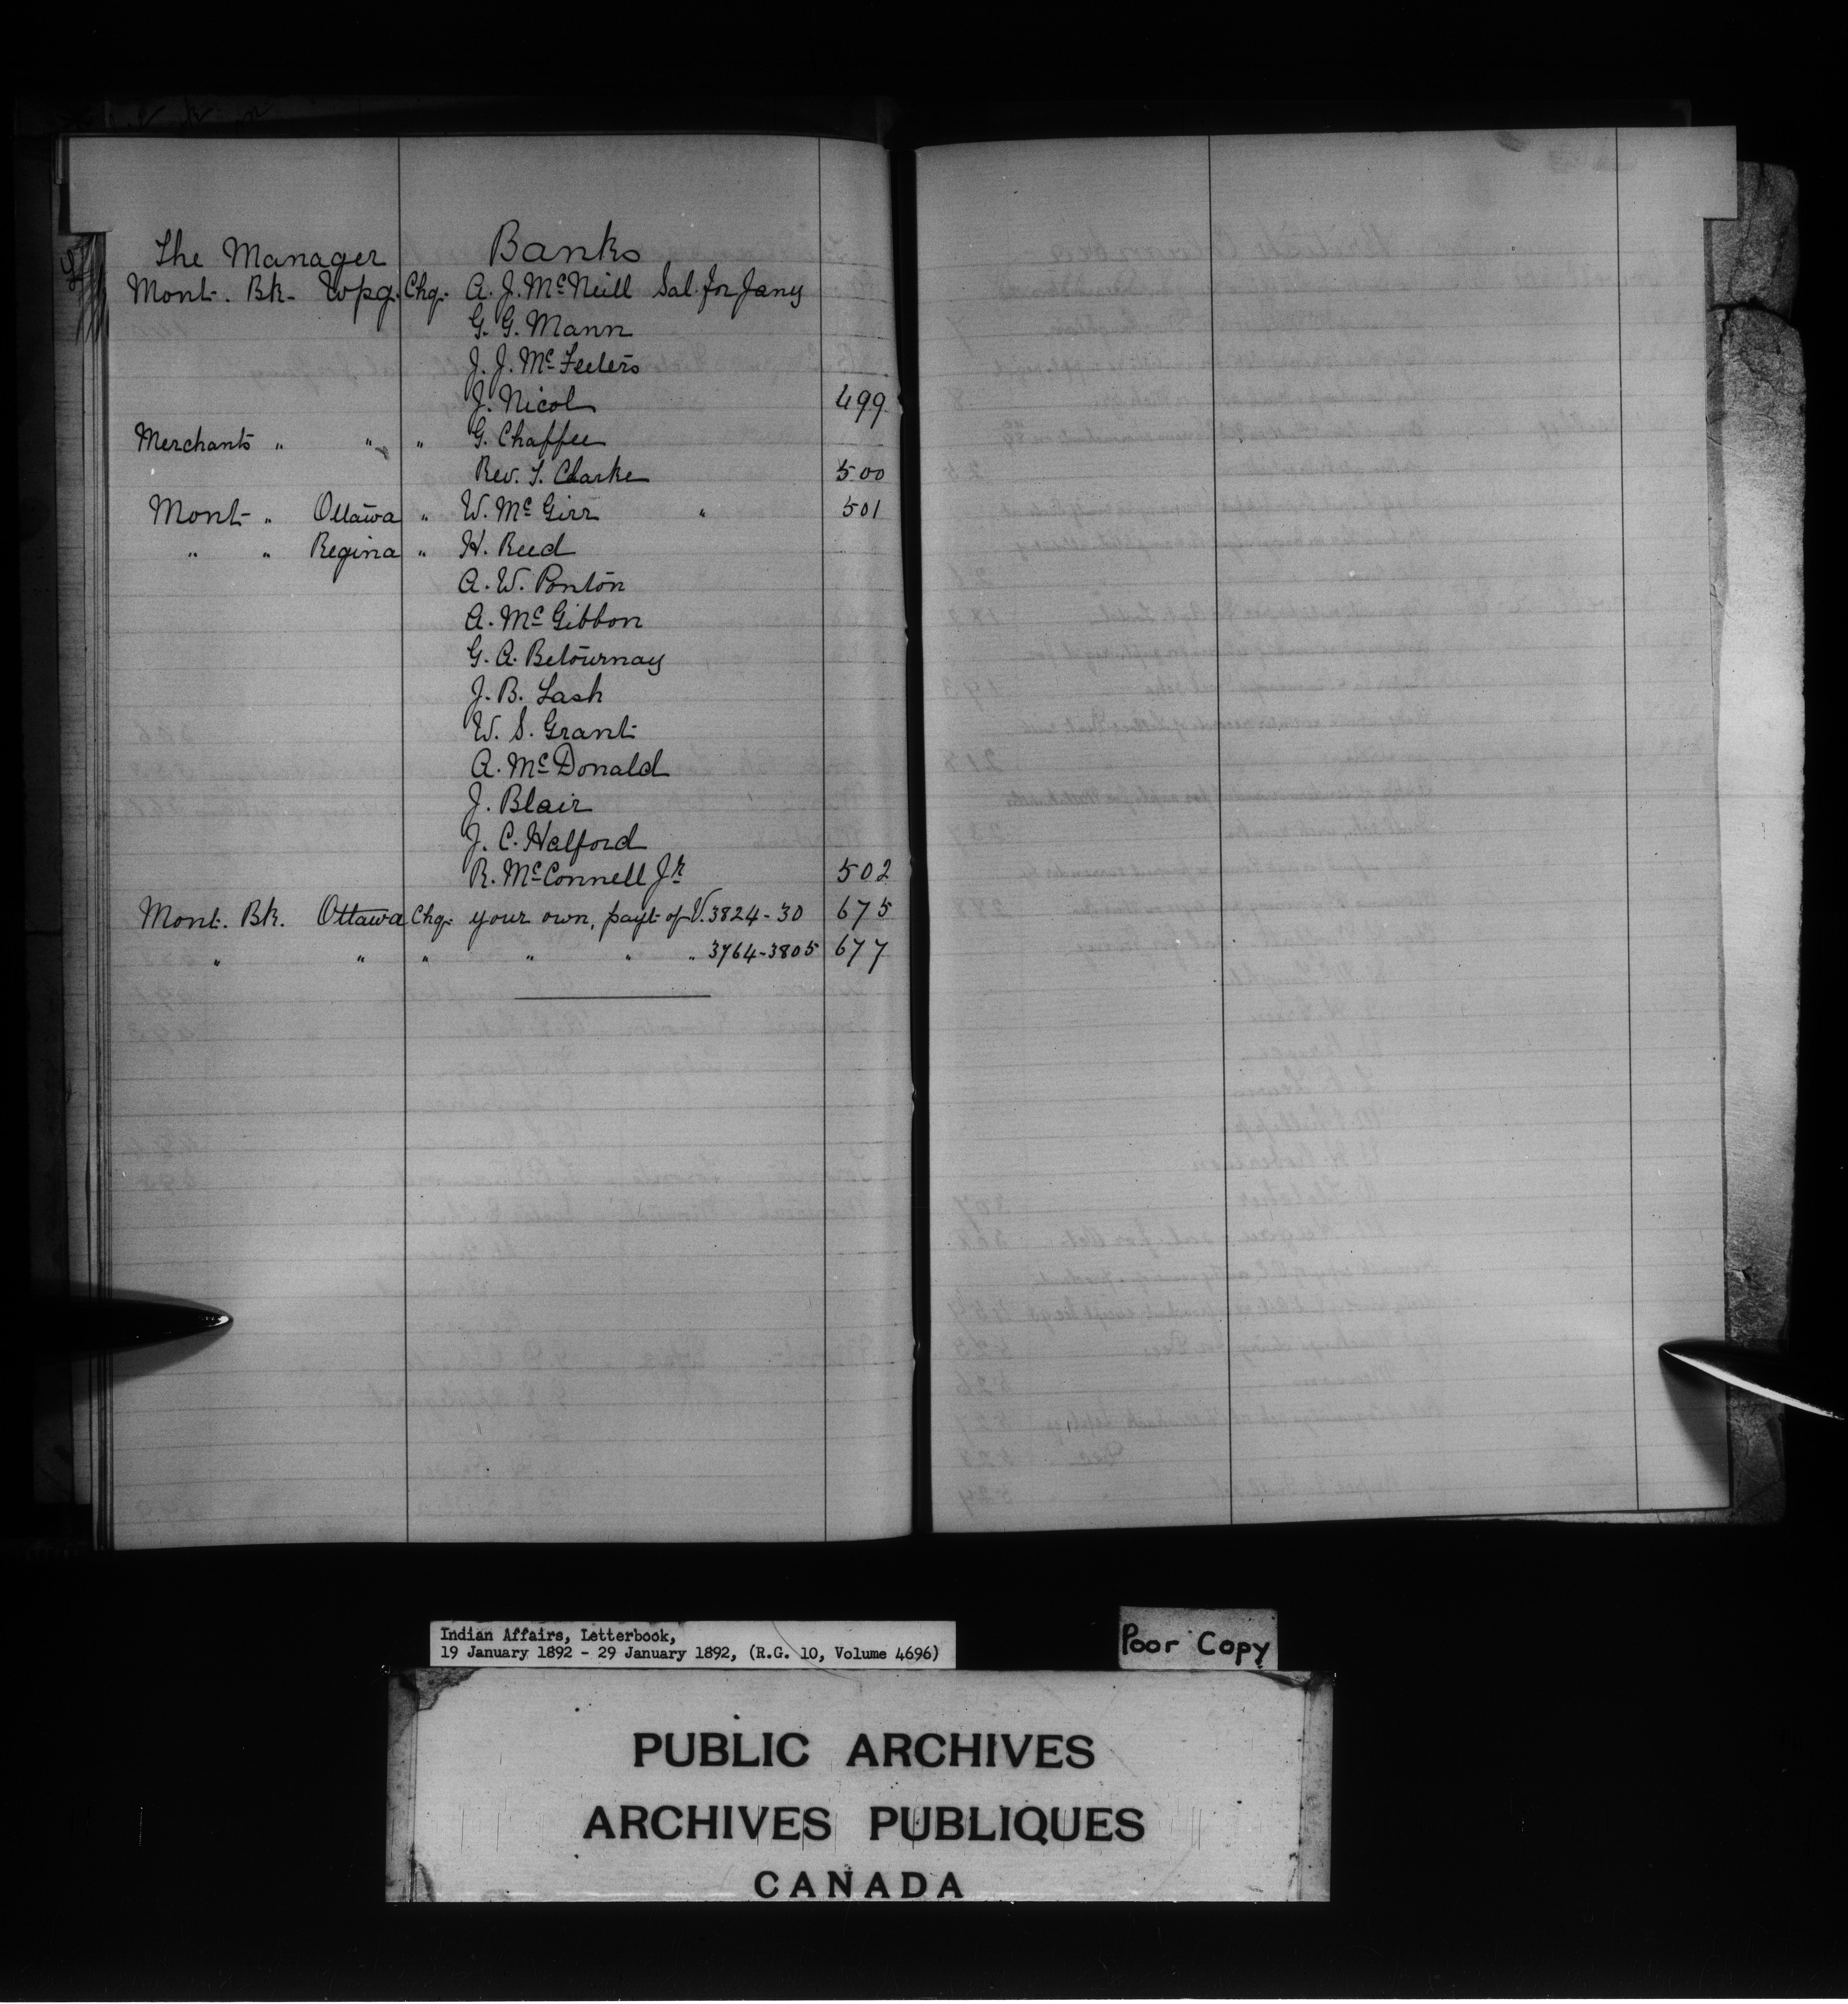 The Manager Banks
Mont. Bk. Wpg. Chq. A. J. McNeill Sal. for Jany
G. G. Mann
J. J. McFeeters
J. Nicol 499
Merchants " " " G. Chaffee
Rev. T. Clarke 500
Mont " Ottawa " W. McGirr " 501
" " Regina " H. Reed
A. W. Ponton
A. McGibbon
G. A. Betournay
J. B. Lash
W. S. Grant
A. McDonald
J. Blair
J. C. Halford
R. McConnell Jr 502
Mont. Bk. Ottawa Chq. your own, payt of V. 3824-30 675
" " " " " " 3764-3805 677
Indian Affairs, Letterbook,
19 January 1892 - 29 January 1892, (R.G. 10, Volume 4696)
Poor Copy
PUBLIC ARCHIVES
ARCHIVES PUBLIQUES
CANADA